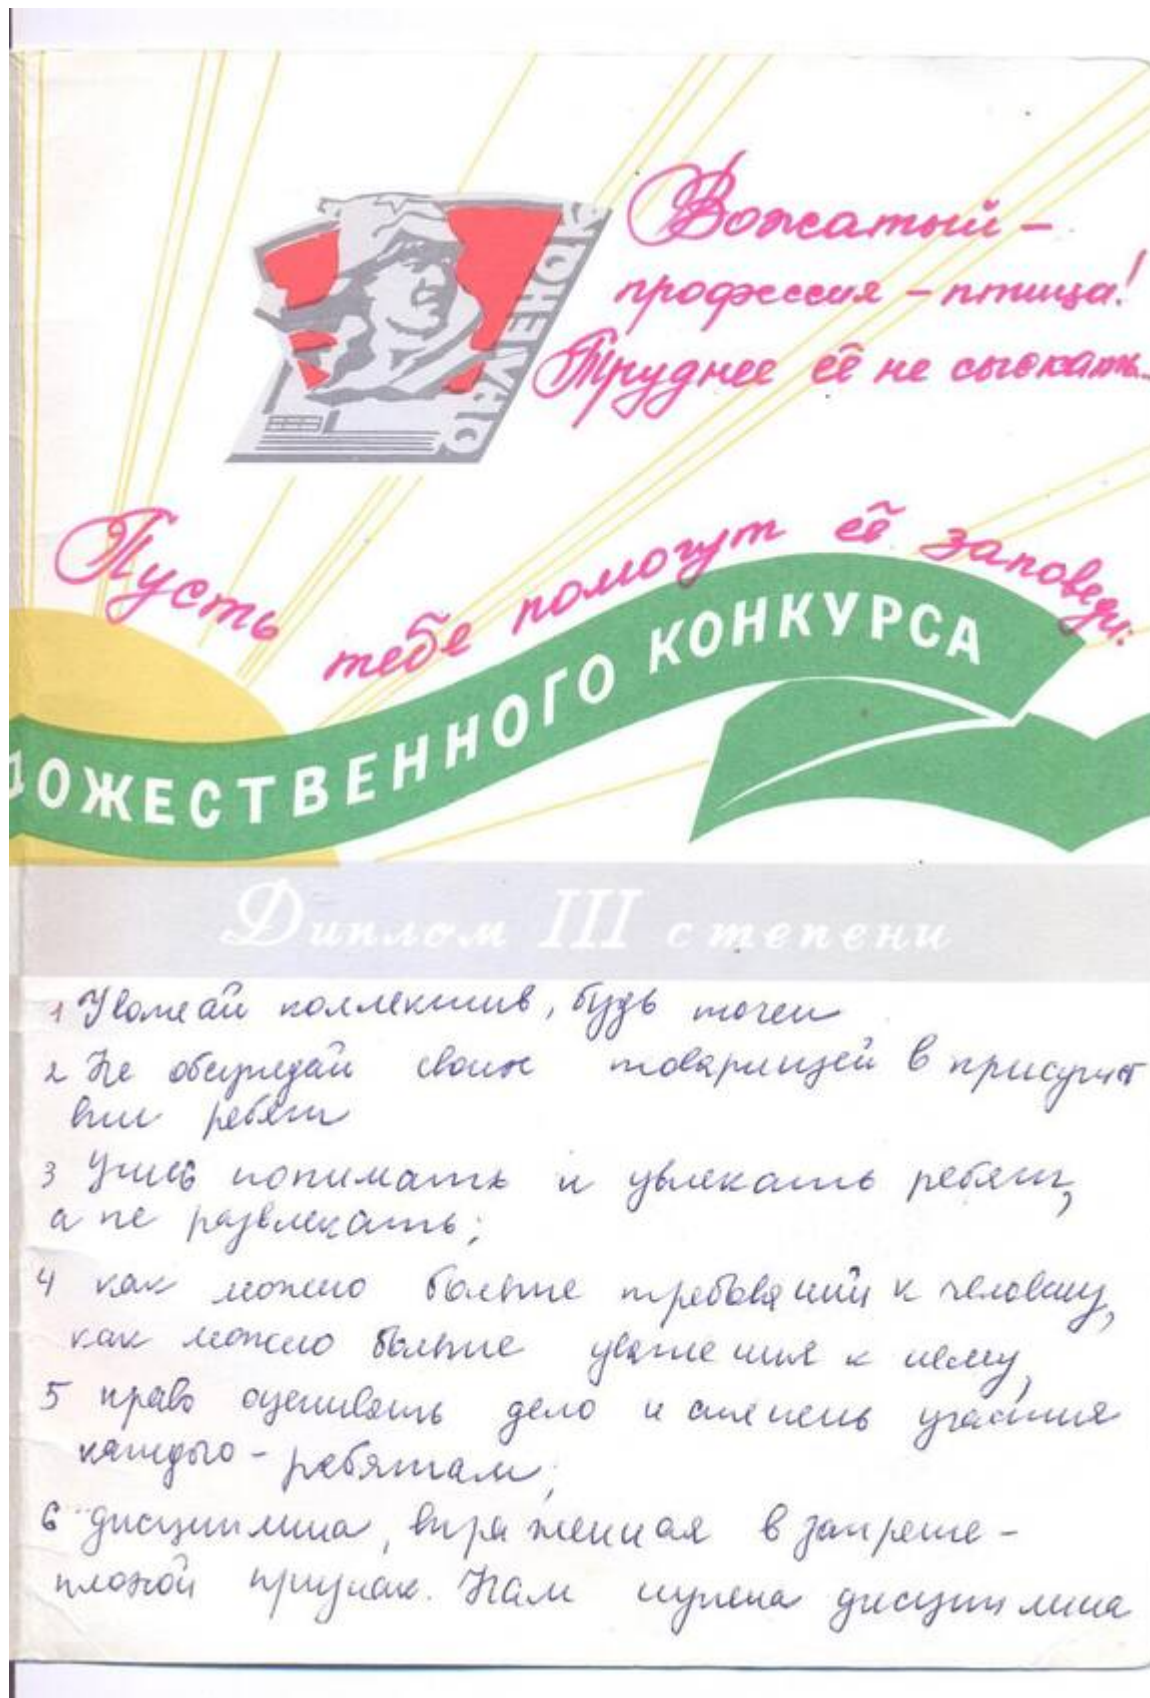 Вожатый –
профессия – птица!
Труднее её не сыскать...
ОРЛЕНОК
Пусть тебе помогут её заповеди:
ДОЖЕСТВЕННОГО КОНКУРСА
Диплом III степени
1 Уважай коллектив, будь точен
2 Не обсуждай своих товарищей в присутст
вии ребят
3 Учись понимать и увлекать ребят,
а не развлекать;
4 как можно больше требований к человеку,
как можно больше уважения к нему,
5 право оценивать дело и степень участия
каждого – ребятам;
6 дисциплина, выраженная в запрете –
плохой признак. Нам нужна дисциплина